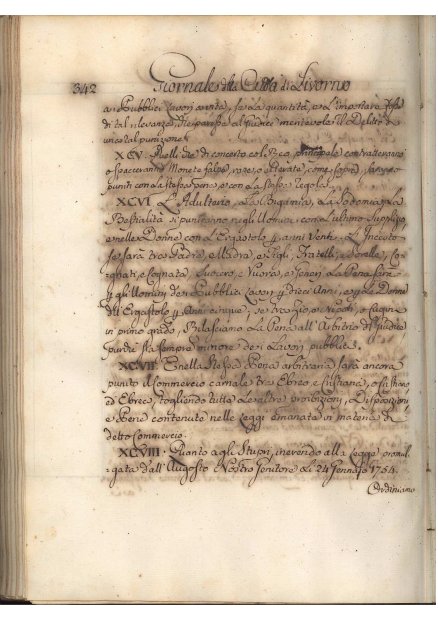 342 Giornale della Città di Livorno
a' Pubblici Lavori a vita, se la quantità, e l'importare fosse
di tal rilevanza, che paresse al Giudice meritevole il Delitto di
una tal punizione.
XCV. Quelli che di concerto col Reo principale contratteranno
o spacceranno Monete false, rase, o alterate, come sopra, saranno
puniti con la stessa pena, e con la stessa regola.
XCVI. L'Adulterio, la Bigamia, la Sodomia, e la
Bestialità si puniranno negli Uomini con l'ultimo Supplizio,
e nelle Donne con l'Ergastolo per anni Venti. L'Incesto
se sarà tra Padre, e Madre, e Figli, Fratelli, e Sorelle, Co-
gnati, e Cognata, Suocero, e Nuora, e Genero, la Pena sarà
per gli Uomini de' Pubblici Lavori per dieci Anni, e per le Donne
dell'Ergastolo per Anni cinque; se tra zio, e nipoti, o cugina
in primo grado, Rilasciamo la Pena all'Arbitrio di Giudice
purchè sia sempre minore de' Lavori pubblici.
XCVII. Nella stessa Pena arbitraria sarà ancora
punito il Commercio carnale tra Ebreo, e Cristiana, o Cristiano
ed Ebrea, togliendo tutte le altre proibizioni, Disposizioni,
e Pene contenute nelle Leggi emanate in materia di
detto Commercio.
XCVIII. Quanto agli Stupri, inerendo alla Legge promul-
gata dall'Augusto Nostro Genitore li 24 Gennajo 1754.
Ordiniamo